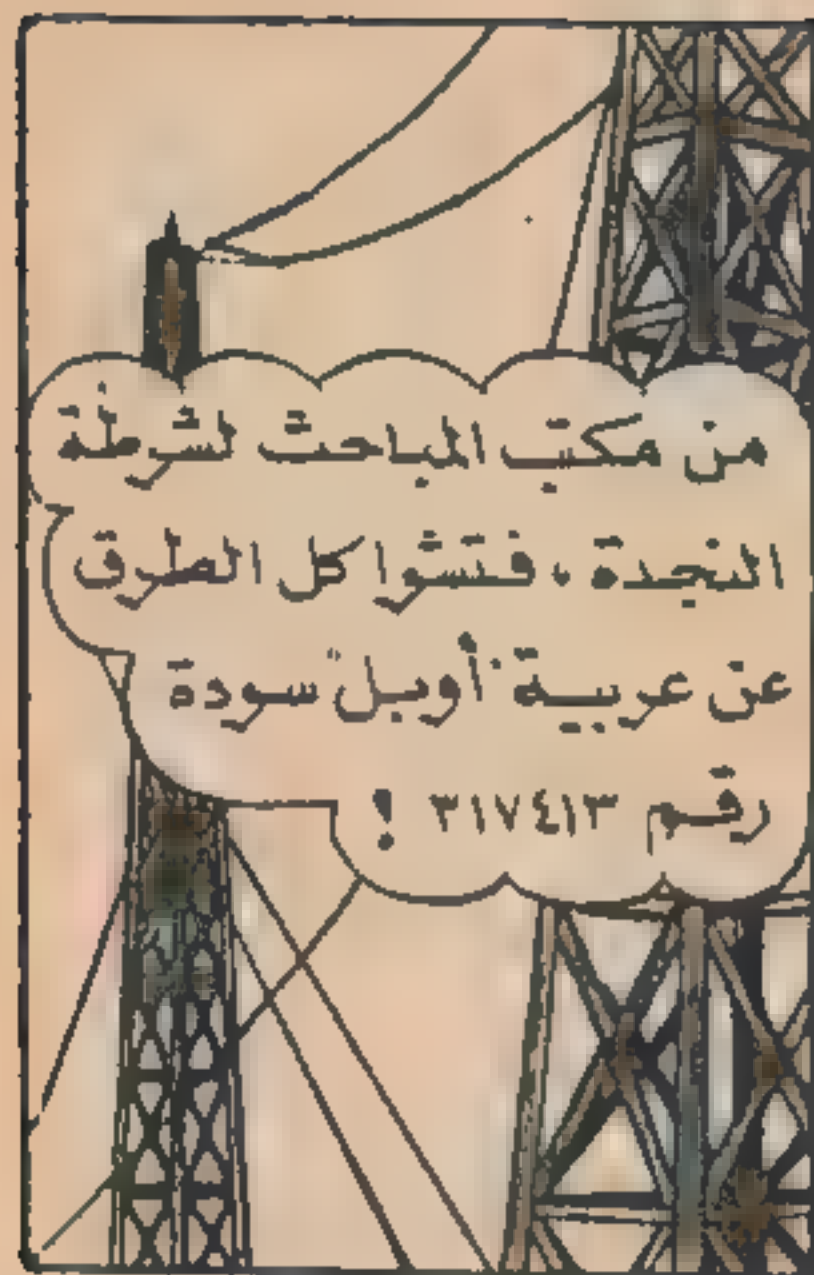 من مكتب المباحث لشرطة
النجدة ، فتشوا كل الطرق
عن عربية "أوبل" سودة
رقم ٣١٧٤١٣ !